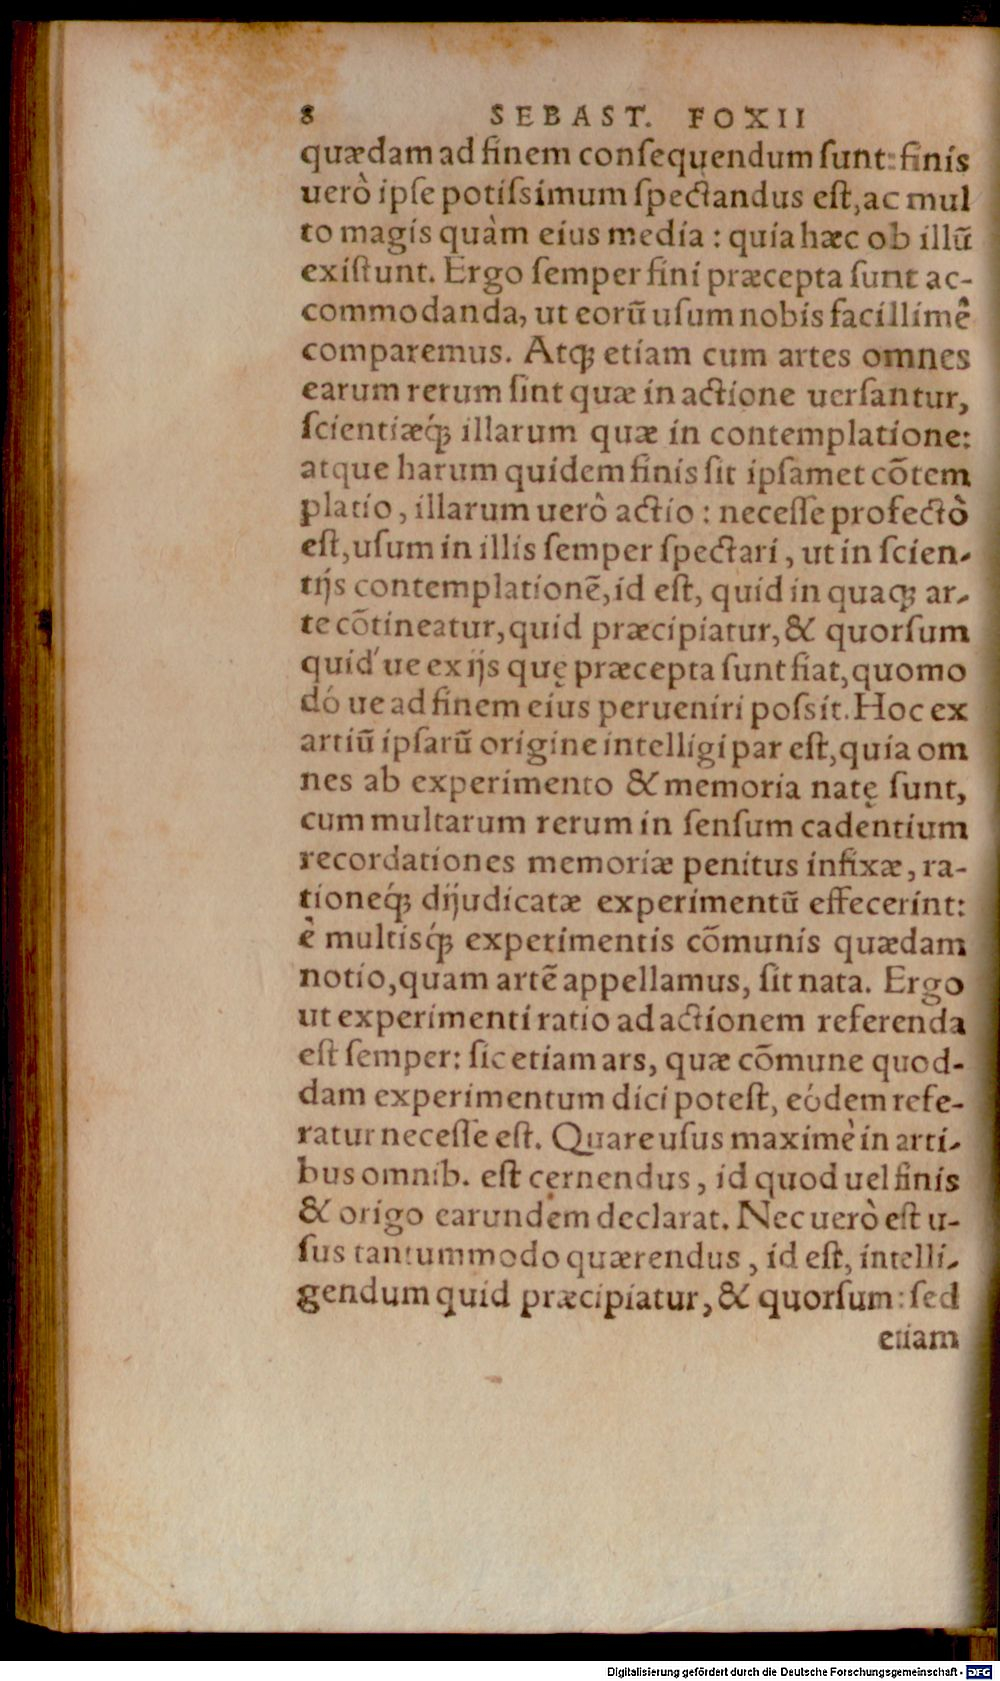 8 SEBAST. FOXII
quædam ad finem conſequendum ſunt: finis
uerò ipſe potiſsimum ſpectandus eſt, ac mul
to magis quàm eius media : quia hæc ob illū
exiſtunt. Ergo ſemper fini præcepta ſunt ac-
commodanda, ut eorū uſum nobis facillimê
comparemus. Atq́; etiam cum artes omnes
earum rerum ſint quæ in actione uerſantur,
ſcientiæq́; illarum quæ in contemplatione:
atque harum quidem finis ſit ipſamet cōtem
platio, illarum uerò actio : neceſſe profectò
eſt, uſum in illis ſemper ſpectari, ut in ſcien-
tijs contemplationē, id eſt, quid in quaq; ar-
te cōtineatur, quid præcipiatur, & quorſum
quid'ue ex ijs quę præcepta ſunt fiat, quomo
dó ue ad finem eius perueniri poſsit. Hoc ex
artiū ipſarū origine intelligi par eſt, quia om
nes ab experimento & memoria natę ſunt,
cum multarum rerum in ſenſum cadentium
recordationes memoriæ penitus infixæ, ra-
tioneq́; dijudicatæ experimentū effecerint:
è multisq́; experimentis cōmunis quædam
notio, quam artē appellamus, ſit nata. Ergo
ut experimenti ratio ad actionem referenda
eſt ſemper: ſic etiam ars, quæ cōmune quod-
dam experimentum dici poteſt, eódem refe-
ratur neceſſe eſt. Quare uſus maximè in arti-
bus omnib. eſt cernendus, id quod uel finis
& origo earundem declarat. Nec uerò eſt u-
ſus tantummodo quærendus, id eſt, intelli-
gendum quid præcipiatur, & quorſum: ſed
etiam
Digitalisierung gefördert durch die Deutsche Forschungsgemeinschaft - DFG